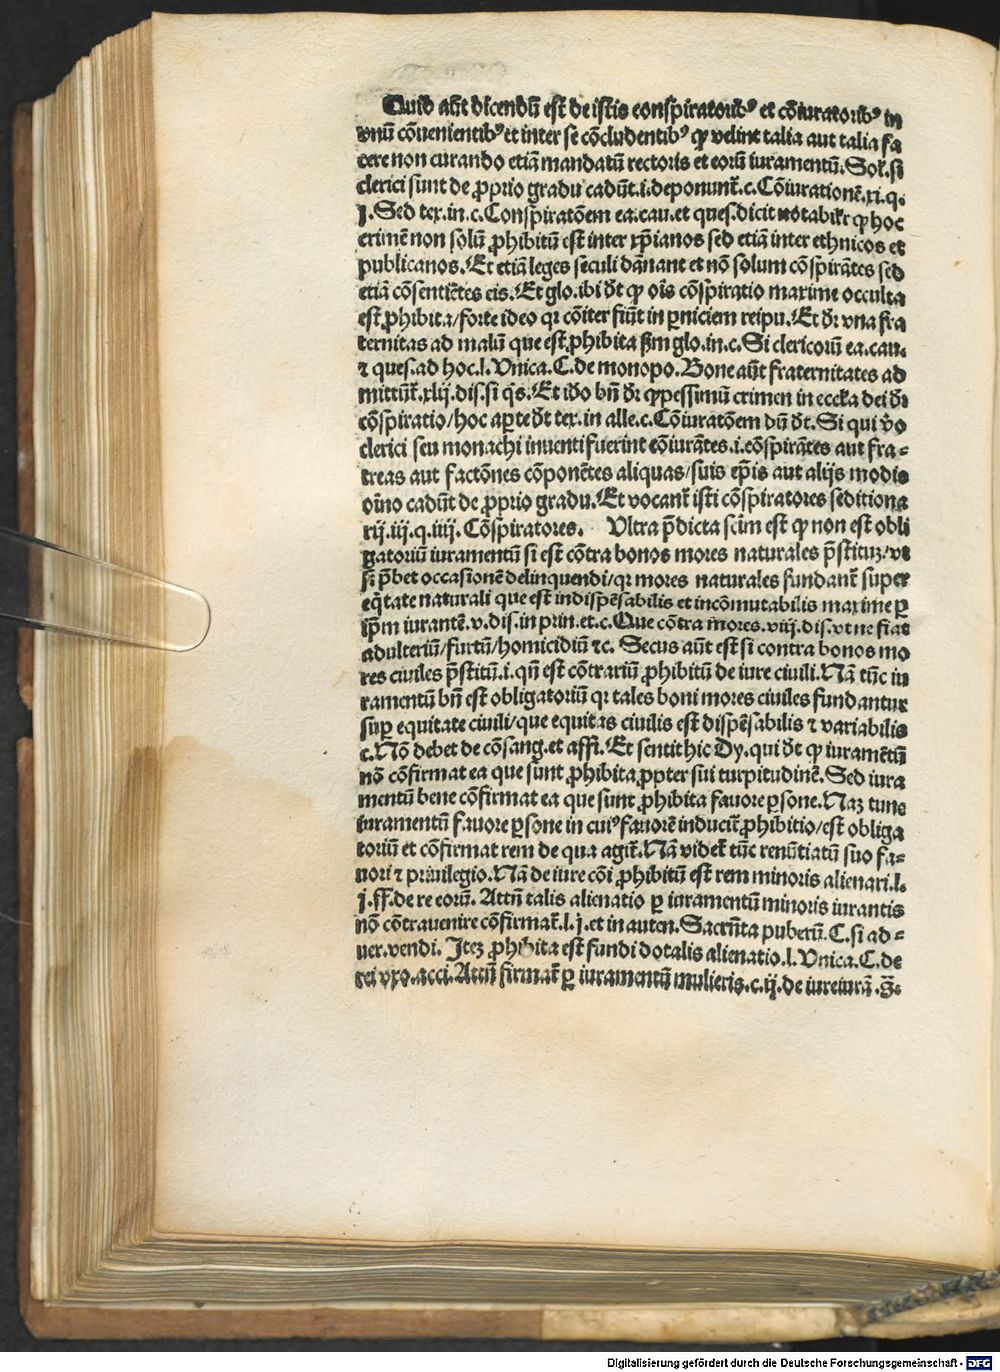 Quid aūt dicendū est de istis conspiratorib⁹ et cōiuratorib⁹ in
vnū cōuenientib⁹ et inter se cōcludentib⁹ ꝙ velint talia aut talia fa
cere non curando etiā mandatū rectoris et eorū iuramentū. Sol̄. si
clerici sunt de ꝓprio gradu cadūt .i. deponunt̄ .c. Cōiurationē .xi. q.
j. Sed tex. in .c. Conspiratōem ea. cau. et ques. dicit notabilr̄ ꝙ hoc
crimē non solū ꝓhibitū est inter xp̄ianos sed etiā inter ethnicos et
publicanos. Et etiā leges seculi dānant et nō solum cōspirātes sed
etiā cōsentiētes eis. Et glo. ibi dt̄ ꝙ oīs cōspiratio maxime occulta
est ꝓhibita/ forte ideo qr cōiter fiūt in ꝑniciem reipu. Et dr̄ vna fra
ternitas ad malū que est ꝓhibita ẜm glo. in .c. Si clericorū ea. cau.
⁊ ques. ad hoc .l. Vnica. C. de monopo. Bone aūt fraternitates ad
mittūt̄ .xlij. dis. si q̄s. Et iḋo bn̄ dr̄ ꝙ pessimū crimen in eccl̄ia dei dr̄
cōspiratio/ hoc aꝑte dt̄ tex. in alle. c. Cōiuratōem dū dt̄. Si qui v̄o
clerici seu monachi inuenti fuerint cōiurātes .i. cōspirātes aut fra-
treas aut factōnes cōponētes aliquas/ suis ep̄is aut alijs modis
oīno cadūt de ꝓprio gradu. Et vocant̄ isti cōspiratores seditiona
rij .iij. q. iiij. Cōspiratores. Vltra p̄dicta scīm est ꝙ non est obli
gatoriū iuramentū si est cōtra bonos mores naturales p̄stituꝫ/ vt
si p̄bet occasionē delinquendi/ qr mores naturales fundant̄ super
eq̄tate naturali que est indispēsabilis et incōmutabilis maxime ꝑ
ip̄m iurantē .v. dis. in prin. et .c. Que cōtra mores .viij. dis. vt ne fiat
adulteriū/ furtū/ homicidiū ⁊c. Secus aūt est si contra bonos mo
res ciuiles p̄stitū .i. qn̄ est cōtrariū ꝓhibitū de iure ciuili. Nā tūc iu
ramentū bn̄ est obligatoriū qr tales boni mores ciuiles fundantur
suꝑ equitate ciuili/ que equitas ciuilis est dispēsabilis ⁊ variabilis
c. Nō debet de cōsang. et affi. Et sentit hic Dy. qui dt̄ ꝙ iuramētū
nō cōfirmat ea que sunt ꝓhibita ꝓpter sui turpitudinē. Sed iura
mentū bene cōfirmat ea que sunt ꝓhibita fauore ꝑsone. Naꝫ tunc
iuramentū fauore ꝑsone in cui⁹ fauorē inducit̄ ꝓhibitio/ est obliga
toriū et cōfirmat rem de qua agit̄. Nā videt̄ tūc renūtiatū suo fa-
uori ⁊ priuilegio. Nā de iure cōi ꝓhibitū est rem minoris alienari .l.
j. ff. de re eorū. Attn̄ talis alienatio ꝑ iuramentū minoris iurantis
nō cōtrauenire cōfirmat̄ .l. j. et in auten. Sacrn̄ta puberū. C. si ad-
uer. vendi. Iteꝫ ꝓhibita est fundi dotalis alienatio .l. Vnica. C. de
rei vxo. acci. Attn̄ firmat̄ ꝑ iuramentū mulieris .c. ij. de iureiurā .
Digitalisierung gefördert durch die Deutsche Forschungsgemeinschaft - DFG